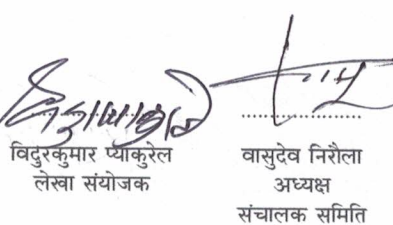 विदुरकुमार प्याकुरेल
लेखा संयोजक
वासुदेव निरौला
अध्यक्ष
संचालक समिति